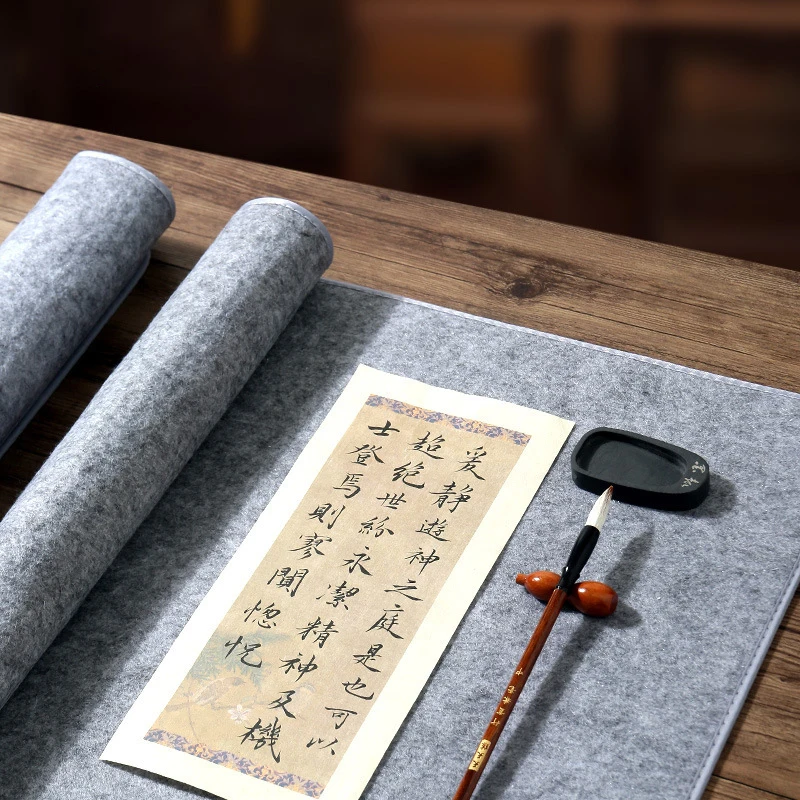 爰靜遊神之庭是也可以
超絕世紛永潔精神及機
士登焉則寥闃惚怳